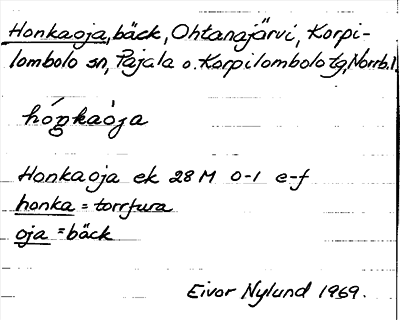 Honkaoja, bäck, Ohtanajärvi, Korpi-
lombolo sn, Pajala o. Korpilombolo tg, Norrb. l.
hóŋkaòja
Honkaoja ek 28 M 0-1 e-f
honka = torrfura
oja = bäck
Eivor Nylund 1969.